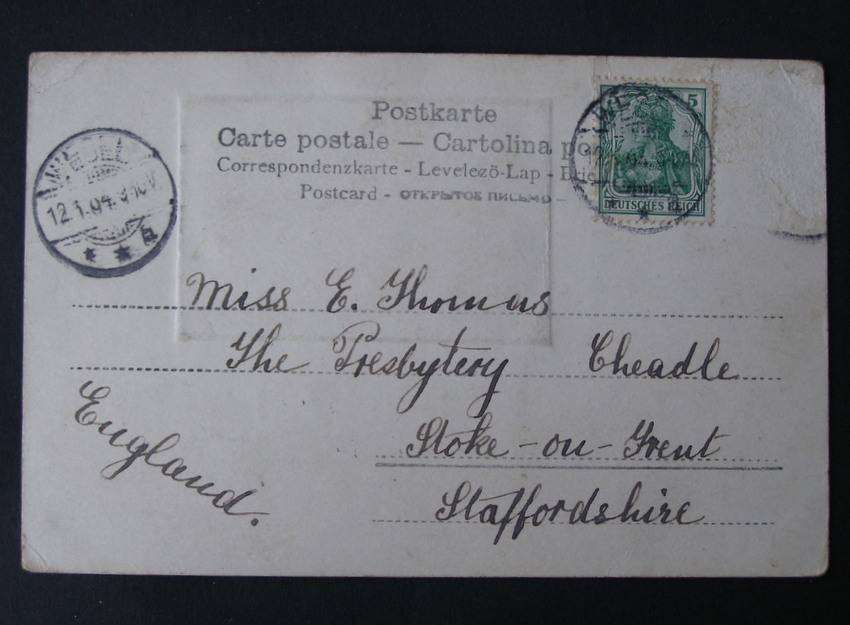 Postkarte
Carte postale — Cartolina
Correspondenzkarte - Levelező-Lap -
Postcard - ОТКРЫТОЕ ПИСЬМО -
5
DEUTSCHES REICH
12.1.04.
Miss E. Thomas
The Presbytery Cheadle
Stoke-on-Trent
Staffordshire
England.